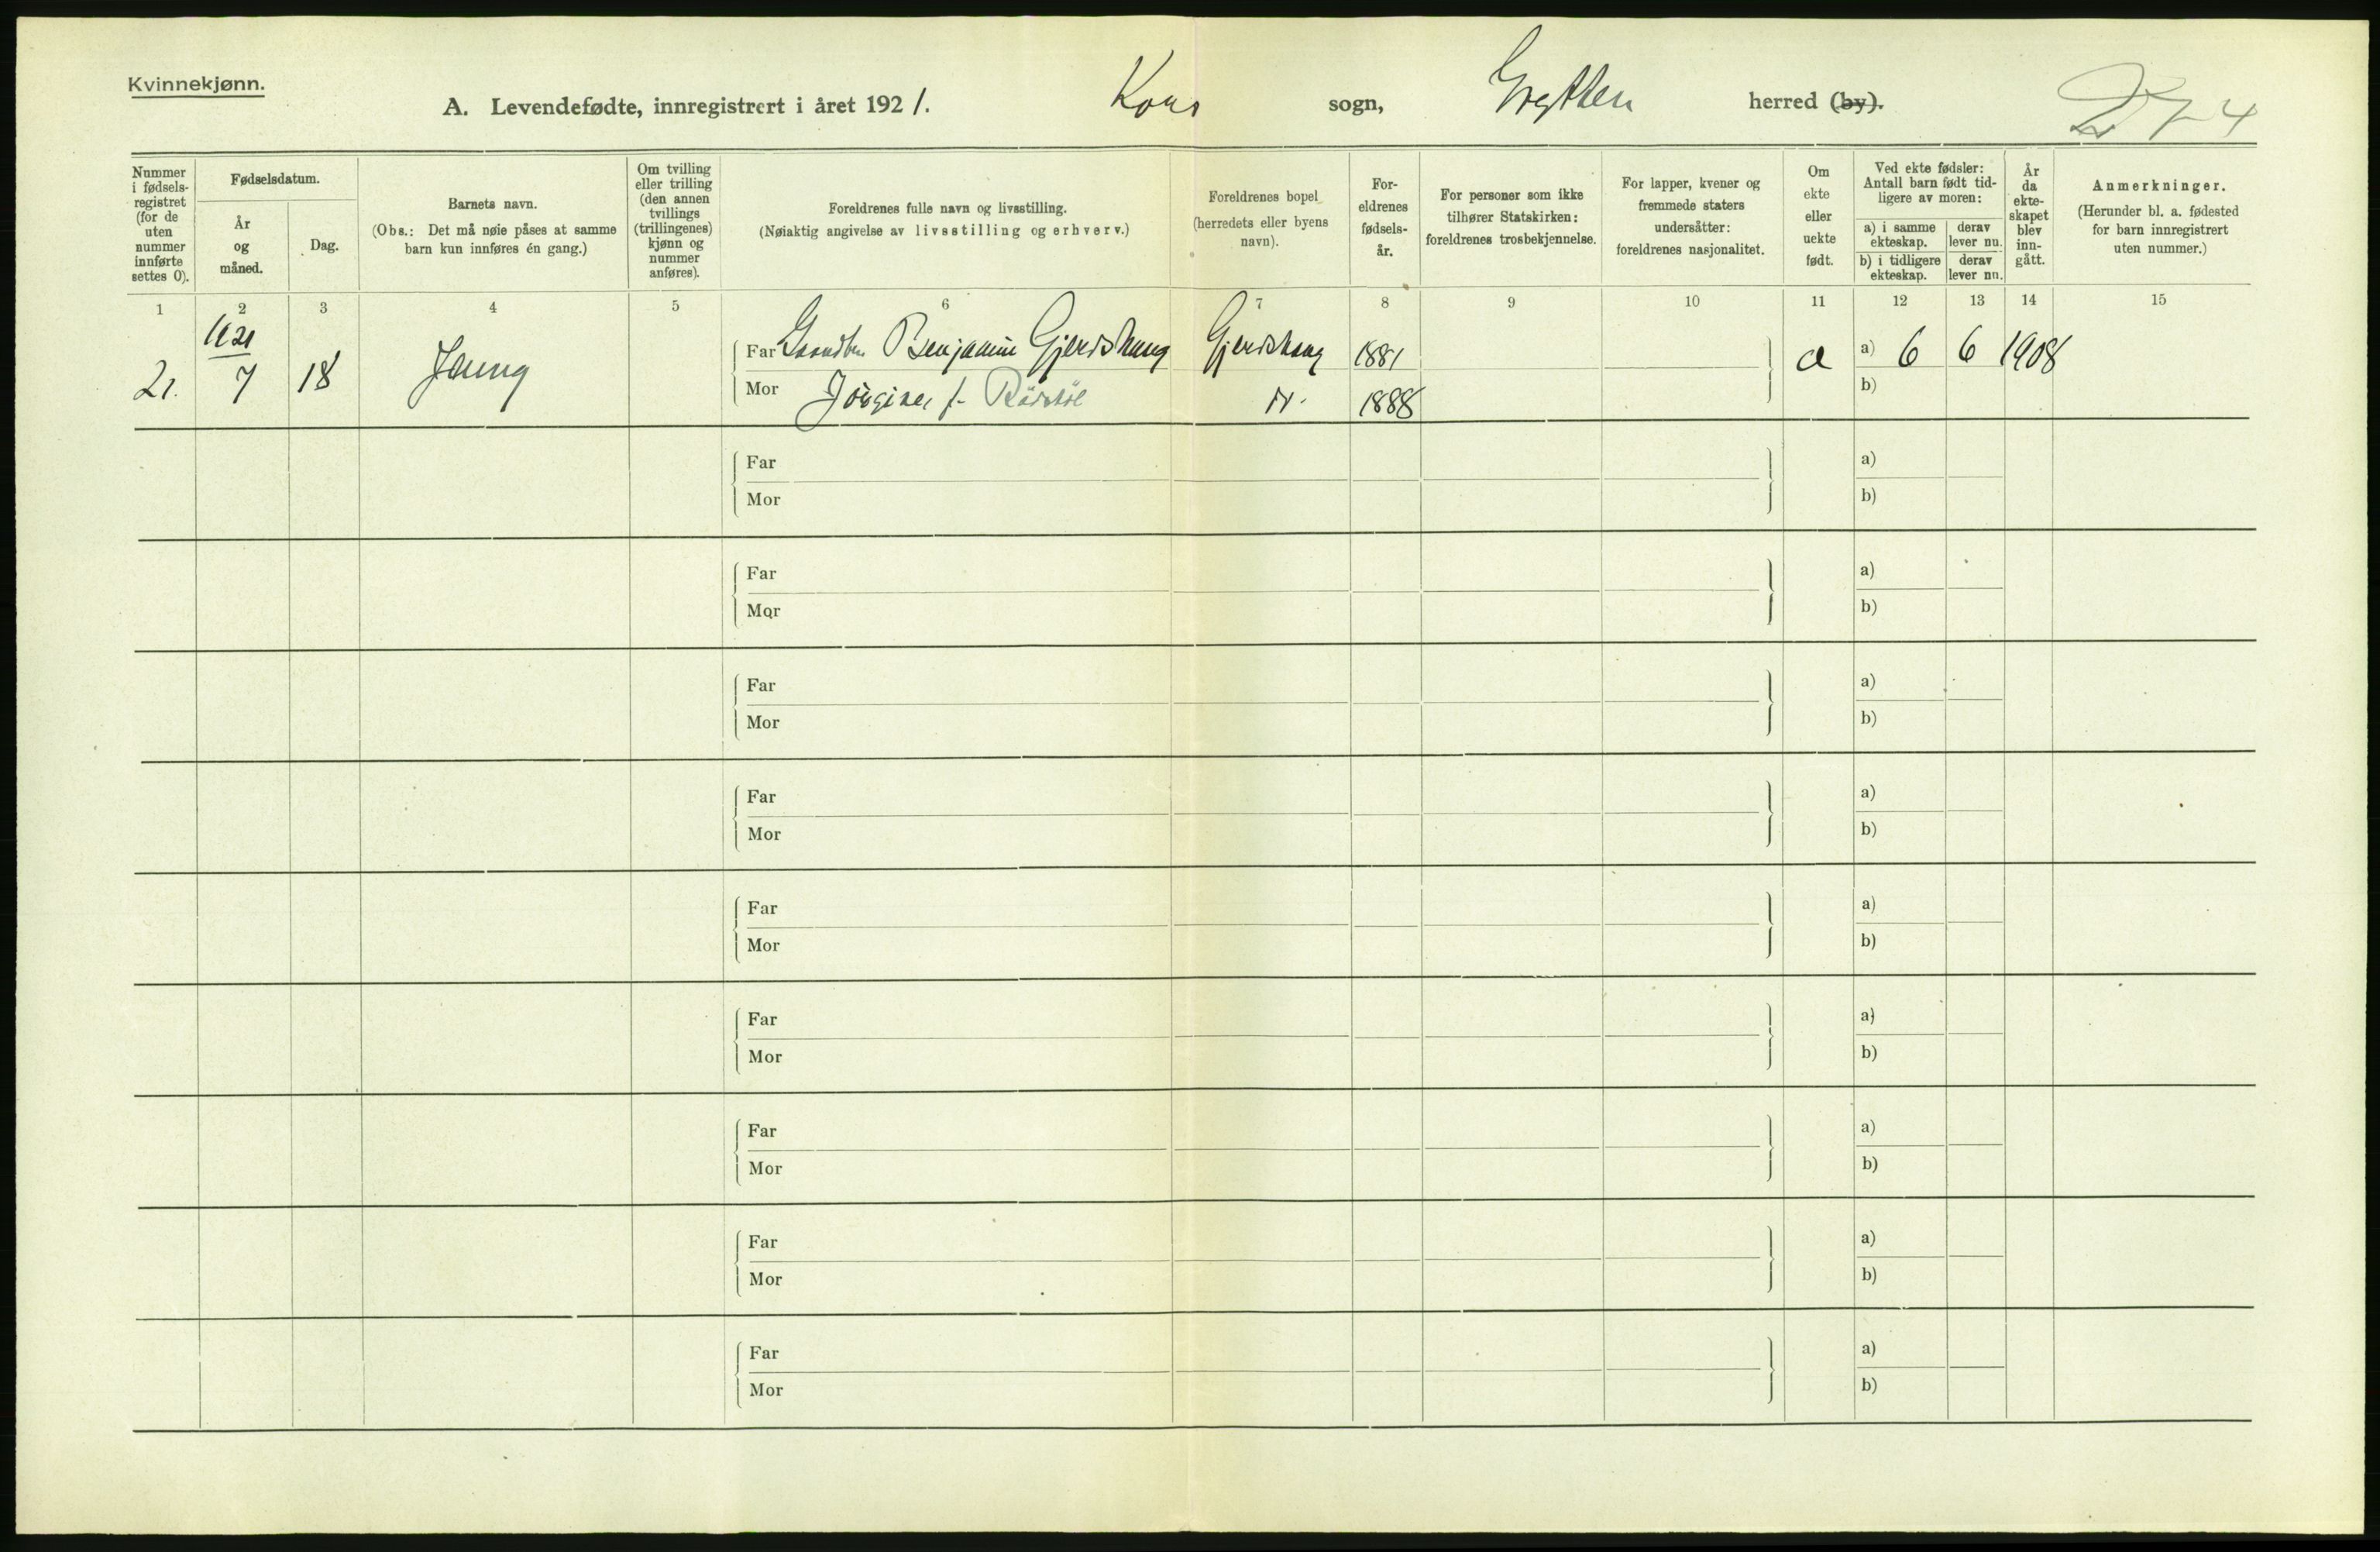 Kvinnekjønn.
A. Levendefødte, innregistrert i året 1921. Kors sogn, Grytten herred (by). 274
Nummer i fødsels-registret (for de uten nummer innførte settes 0).
Fødselsdatum.
År og måned.
Dag.
Barnets navn.
(Obs.: Det må nøie påses at samme barn kun innføres én gang.)
Om tvilling eller trilling (den annen tvillings (trillingenes) kjønn og nummer anføres).
Foreldrenes fulle navn og livsstilling.
(Nøiaktig angivelse av livsstilling og erhverv.)
Foreldrenes bopel (herredets eller byens navn).
For-eldrenes fødsels-år.
For personer som ikke tilhører Statskirken: foreldrenes trosbekjennelse.
For lapper, kvener og fremmede staters undersåtter: foreldrenes nasjonalitet.
Om ekte eller uekte født.
Ved ekte fødsler: Antall barn født tid-ligere av moren:
a) i samme ekteskap.
derav lever nu.
b) i tidligere ekteskap.
derav lever nu.
År da ekte-skapet blev inn-gått.
Anmerkninger.
(Herunder bl. a. fødested for barn innregistrert uten nummer.)
1 2 3 4 5 6 7 8 9 10 11 12 13 14 15
1921
Far Benjamin Gjerdshaug Gjerdshaug 1881 a) 6 6 1908
21. 7 18 Jenny
Mor 1888 b)
Far a)
Mor b)
Far a)
Mor b)
Far a)
Mor b)
Far a)
Mor b)
Far a)
Mor b)
Far a)
Mor b)
Far a)
Mor b)
Far a)
Mor b)
Far a)
Mor b)